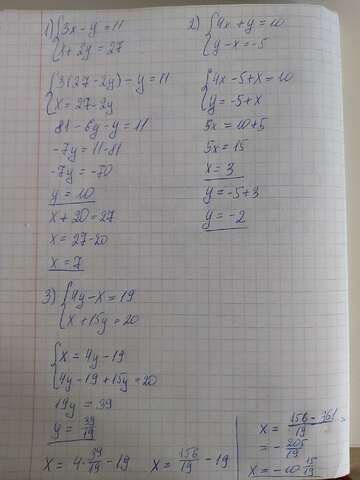 1) { 3x - y = 11
x + 2y = 27
{ 3(27 - 2y) - y = 11
x = 27 - 2y
81 - 6y - y = 11
-7y = 11 - 81
-7y = -70
y = 10
x + 20 = 27
x = 27 - 20
x = 7
2) { 4x + y = 10
y - x = -5
{ 4x - 5 + x = 10
y = -5 + x
5x = 10 + 5
5x = 15
x = 3
y = -5 + 3
y = -2
3) { 4y - x = 19
x + 15y = 20
{ x = 4y - 19
4y - 19 + 15y = 20
19y = 39
y = 39/19
x = 4 · 39/19 - 19
x = 156/19 - 19
x = (156 - 361)/19 =
= - 205/19
x = -10 15/19